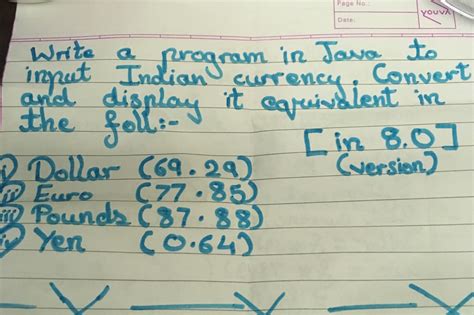 Page No.:
Date:
YOUVA
Write a program in Java to
input Indian currency. Convert
and display it equivalent in
the foll:-
[in 8.0]
(version)
i) Dollar (69.29)
ii) Euro (77.85)
iii) Pounds (87.88)
iv) Yen (0.64)